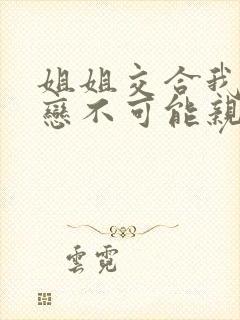 姐姐交合我
戀不可能親
雲霓